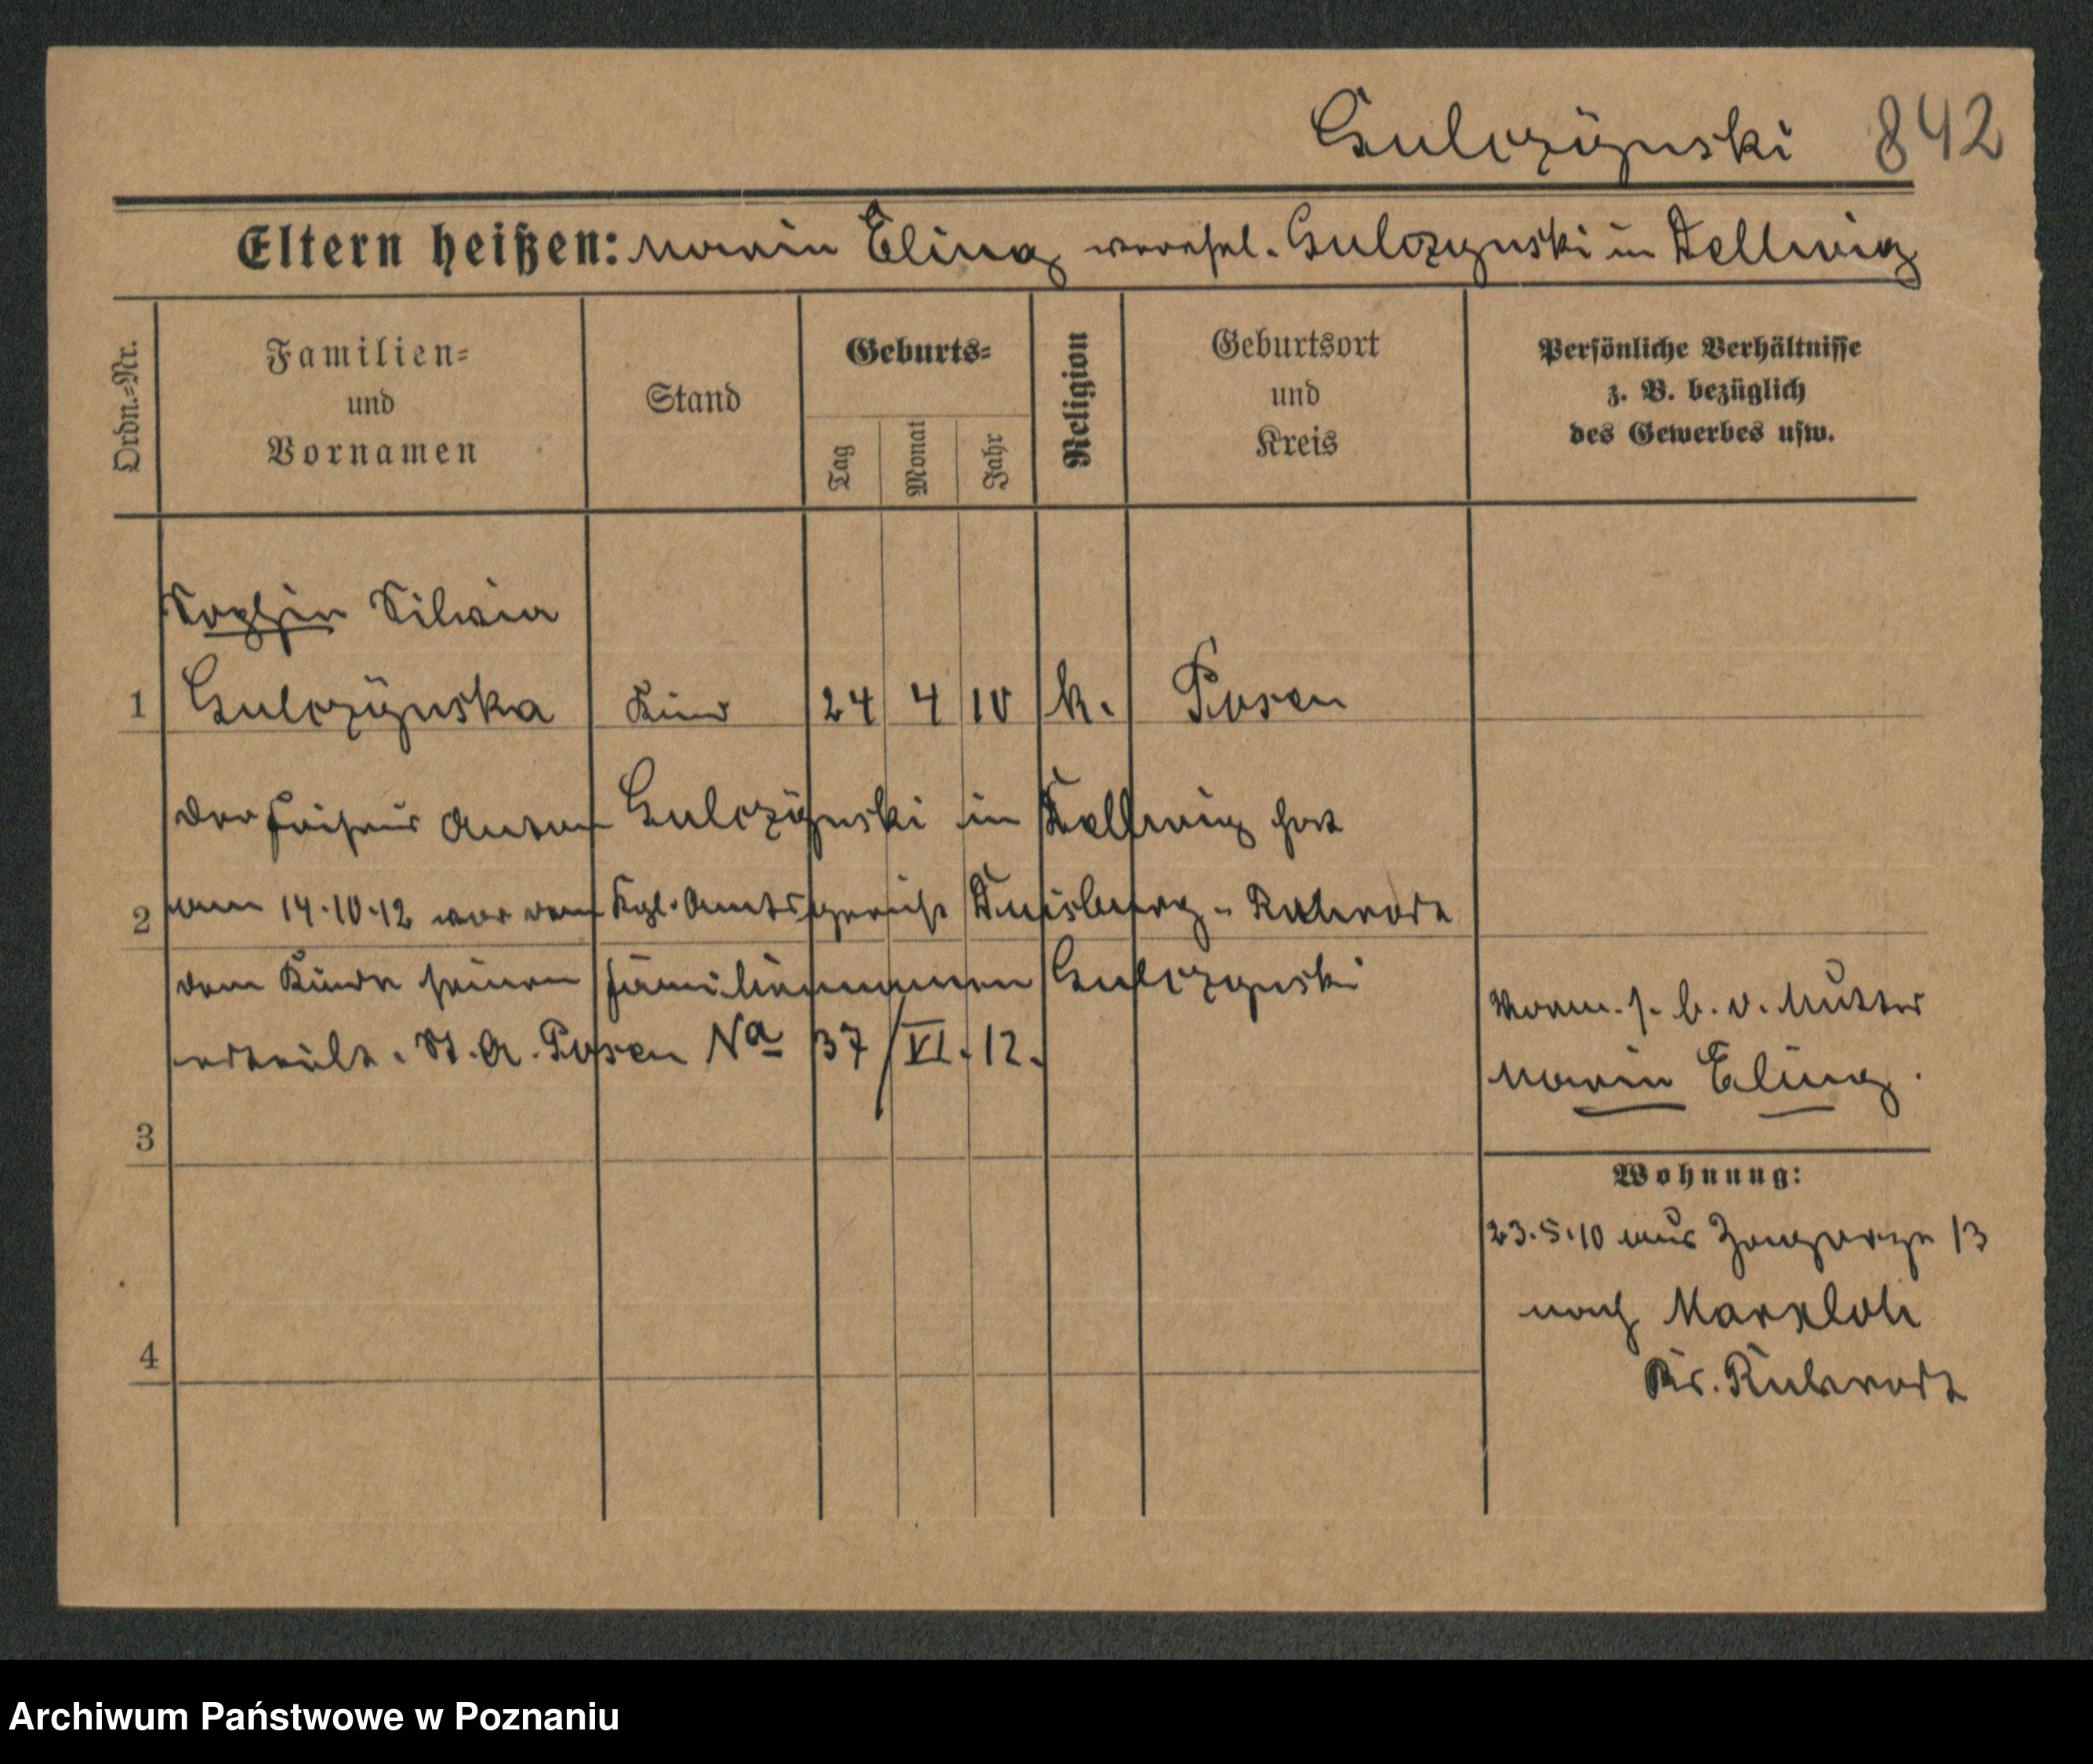 Gulczÿnski 842
Eltern heißen: Maria Eling verehel. Gulczynski in Dellwig
Ordn.=Nr.
Familien=
und
Vornamen
Stand
Geburts=
Tag
Monat
Jahr
Religion
Geburtsort
und
Kreis
Persönliche Verhältnisse
z. B. bezüglich
des Gewerbes usw.
Sophie Silvia
1 Gulczÿnska Kind 24 4 10 k. Posen
Der Friseur Anton Gulczÿnski in Dellwig hat
2 am 14.10.12 vor dem Kgl. Amtsgericht Duisburg-Ruhrort
dem Kinde seinen Familiennamen Gulczynski
erteilt. St. A. Posen Na 37/VI.12.
3
4
Vorm. s. b. d. Mutter
Maria Eling.
Wohnung:
23.5.10 aus 13
nach Marxloh
Kr. Ruhrort
Archiwum Państwowe w Poznaniu